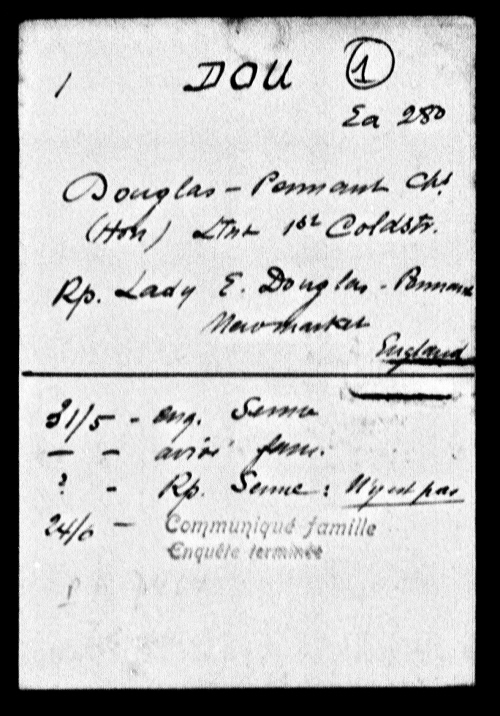 1 DOU 1
Ea 280
Douglas - Pennant Chs.
(Hon) Ltnt 1st Coldstr.
Rp. Lady E. Douglas - Pennant
Newmarket
England
31/5 - enq. Senne
— - avisé fam.
? - Rp. Senne : N'y est pas
24/6 — Communiqué famille
Enquête terminée